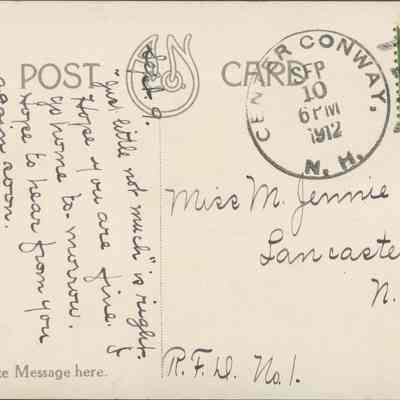 POST CARD
CENTER CONWAY,
SEP
10
6 PM
1912
N. H.
Sept. 9.
"Just little not much" is right.
Hope you are fine. I
go home to-morrow.
Hope to hear from you
again soon.
Miss M. Jennie
Lancaste
N.
R.F.D. No. 1.
te Message here.